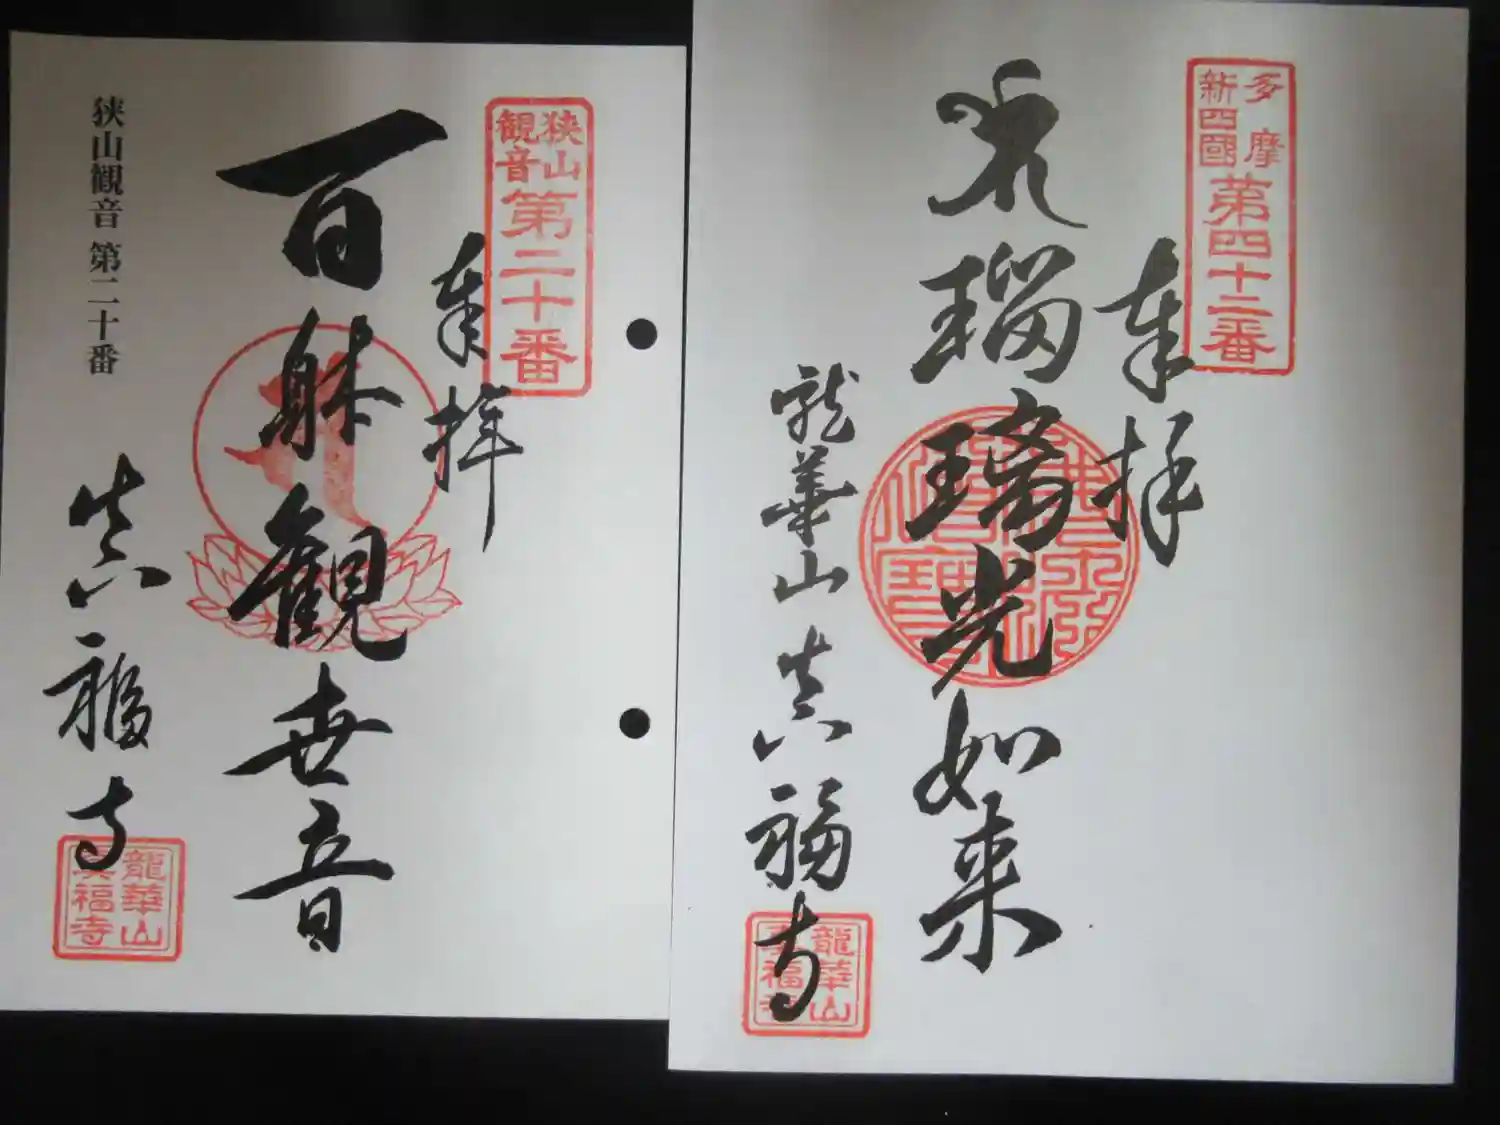 狭山観音
第二十番
奉拝
百躰観世音
狭山観音 第二十番
真福寺
龍華山
真福寺
多摩
新四國
第四十二番
奉拝
瑠璃光如来
龍華山 真福寺
龍華山
真福寺